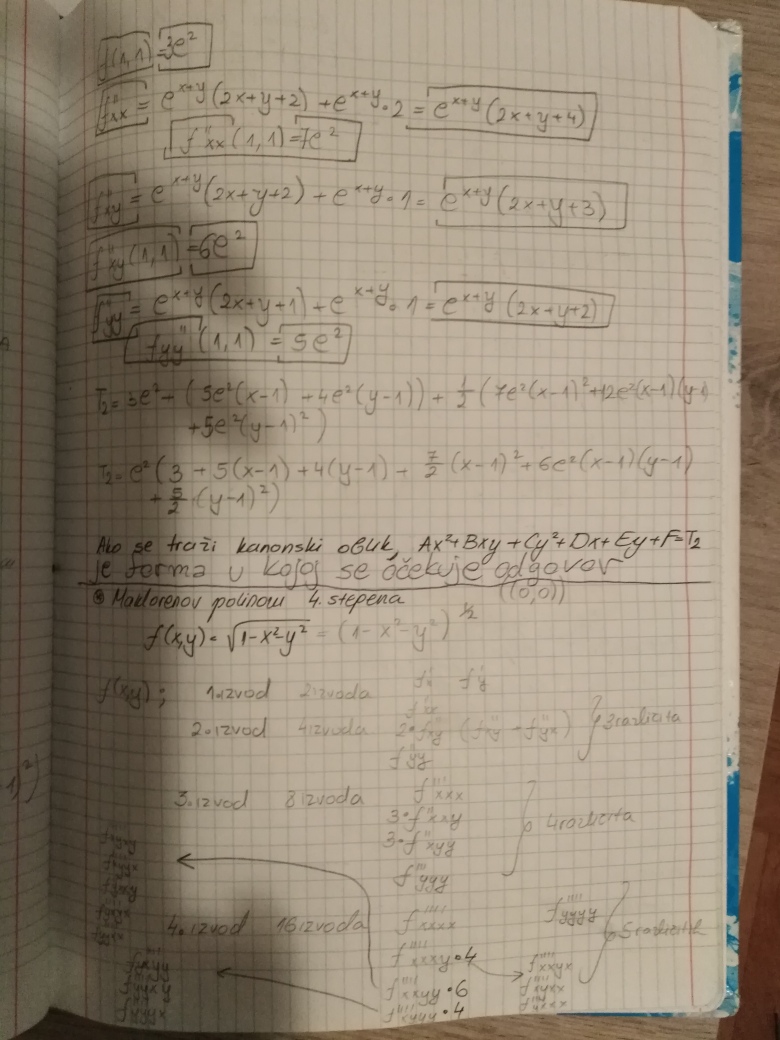 f(1,1) = 3e²
f''xx = e^x+y (2x+y+2) + e^x+y · 2 = e^x+y (2x+y+4)
f''xx (1,1) = 7e²
f''xy = e^x+y (2x+y+2) + e^x+y · 1 = e^x+y (2x+y+3)
f''xy (1,1) = 6e²
f''yy = e^x+y (2x+y+1) + e^x+y · 1 = e^x+y (2x+y+2)
fyy'' (1,1) = 5e²
T₂ = 3e² + (5e²(x-1) + 4e²(y-1)) + 1/2 (7e²(x-1)² + 12e²(x-1)(y-1)
+ 5e²(y-1)²)
T₂ = e² (3 + 5(x-1) + 4(y-1) + 7/2 (x-1)² + 6e²(x-1)(y-1)
+ 5/2 · (y-1)²)
Ako se traži kanonski oblik, Ax²+Bxy+Cy²+Dx+Ey+F=T₂
je forma u kojoj se očekuje odgovor
Maklorenov polinom 4. stepena ((0,0))
f(x,y) = √1-x²-y² = (1-x²-y²)^1/2
f(x,y); 1. izvod 2 izvoda f'x f'y
f''xx
2. izvod 4 izvoda 2·f''xy (f''xy = f''yx) 3 različita
f''yy
3. izvod 8 izvoda f'''xxx
3·f''xxy
4 različita
3·f''xyy
f'''yyy
4. izvod 16 izvoda f''''xxxx f''''yyyy 5 različitih
f''''xxxy · 4 f''''xxyx
f''''xxyy · 6 f''''xyxx
f''''xyyy · 4 f''''yxxx